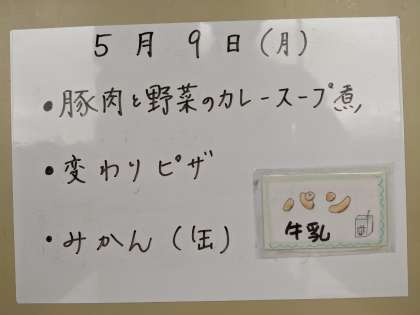 5月9日(月)
•豚肉と野菜のカレースープ煮
•変わりピザ
•みかん(缶)
パン
牛乳